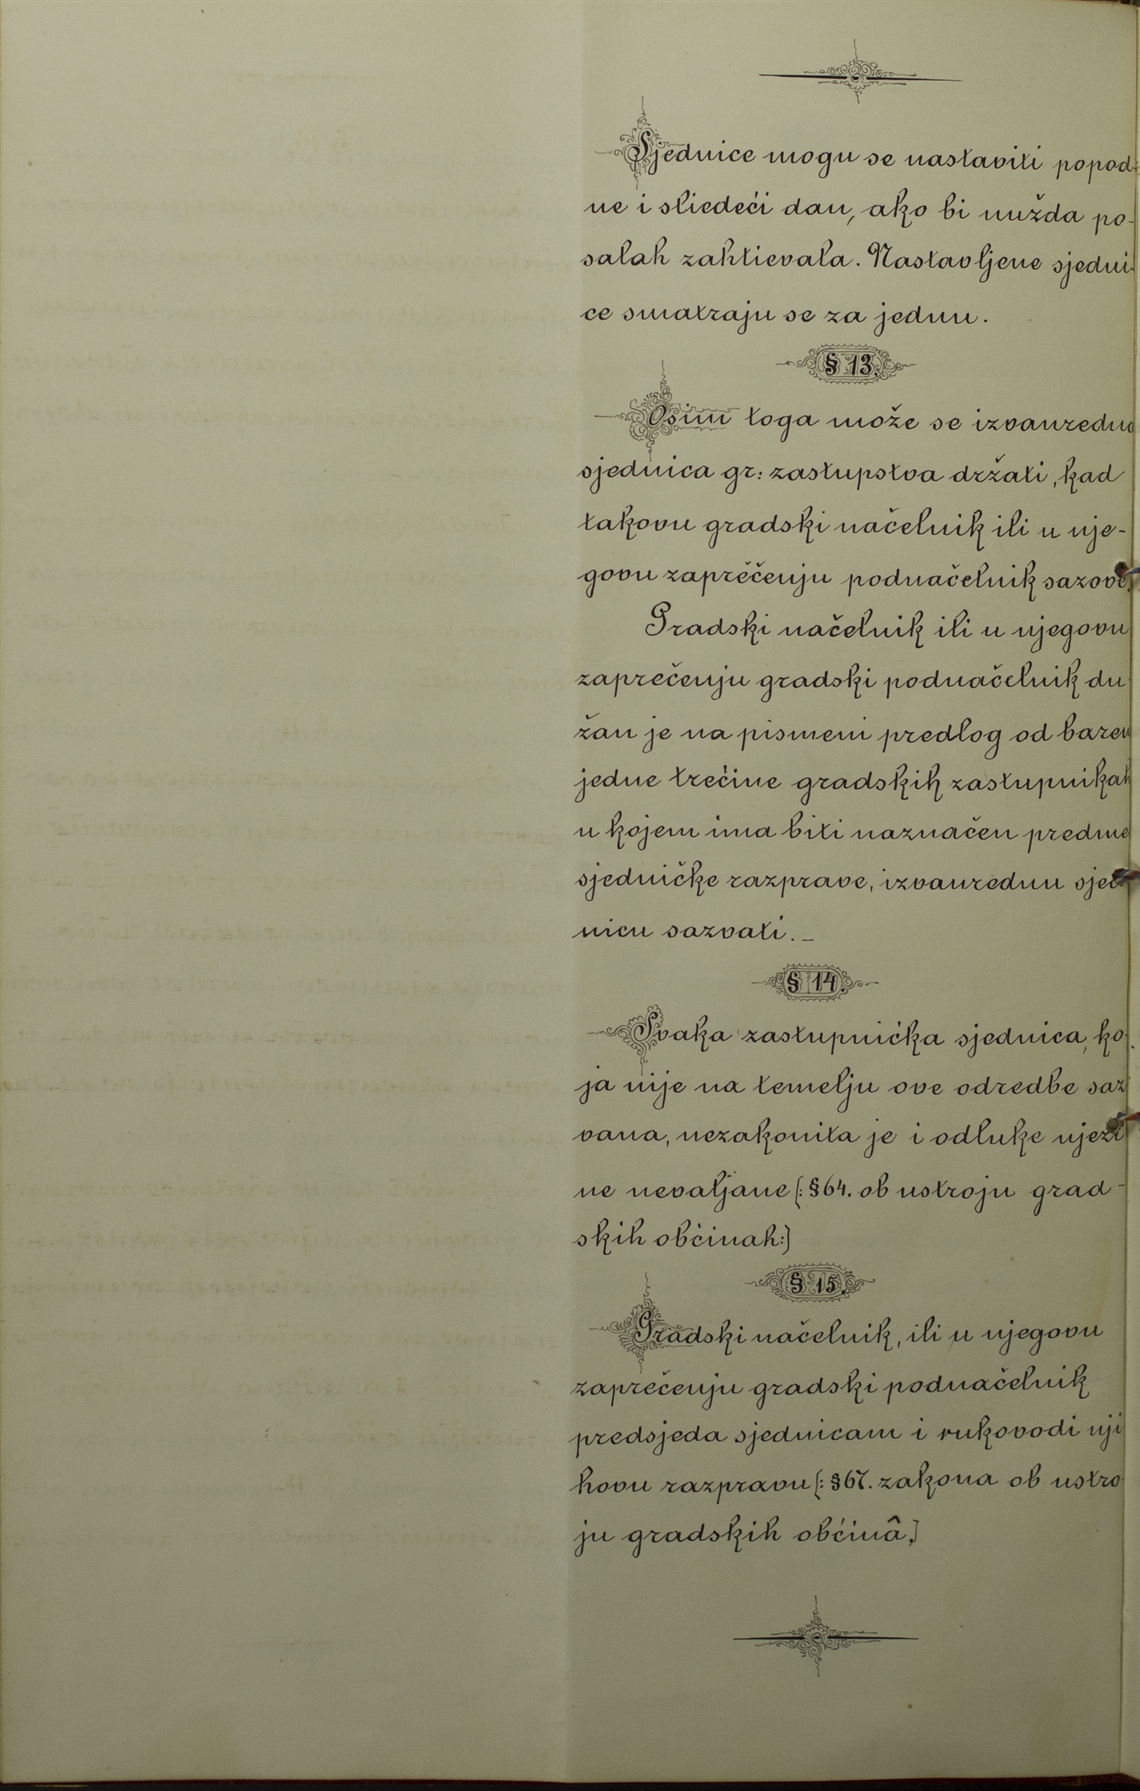 Sjednice mogu se nastaviti popod-
ne i sliedeći dan, ako bi nužda po-
salah zahtievala. Nastavljene sjedni-
ce smatraju se za jednu.
§ 13.
Osim toga može se izvanredna
sjednica gr: zastupstva držati, kad
takovu gradski načelnik ili u nje-
govu zaprěčenju podnačelnik sazove.
Gradski načelnik ili u njegovu
zaprečenju gradski podnačelnik du
žan je na pismeni predlog od barem
jedne trećine gradskih zastupnikah
u kojem ima biti naznačen predme
sjedničke razprave, izvanrednu sjed
nicu sazvati. _
§ 14.
Svaka zastupnička sjednica, ko-
ja nije na temelju ove odredbe saz
vana, nezakonita je i odluke njezi
ne nevaljane (: § 64. ob ustroju grad-
skih občinah:)
§ 15.
Gradski načelnik, ili u njegovu
zaprečenju gradski podnačelnik
predsjeda sjednicam i rukovodi nji
hovu razpravu (: § 67. zakona ob ustro
ju gradskih občinâ.)